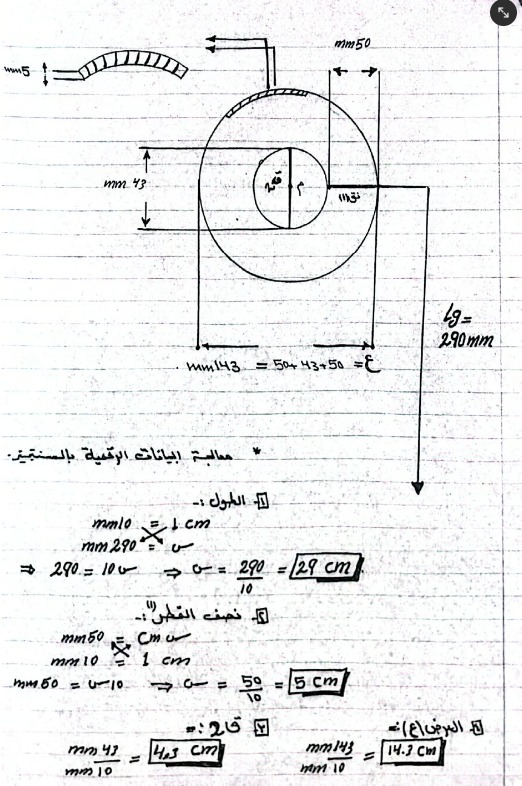 mm50
mm5
mm 43
قا2
م
نق(١)
lg=
290mm
mm143 = 50+43+50 =ع
* معالجة البيانات الرقمية بالسنتيمتر.
1- الطول :-
mm10 = 1 cm
mm290 = س
⇒ 290 = 10 س ⇒ س = 290/10 = 29 cm
2- نصف القطر(١):-
mm50 = cm س
mm10 = 1 cm
mm50 = س10 → س = 50/10 = 5 cm
العرض(ع):=
mm143/mm10 = 14.3 cm
قا2 :=
mm43/mm10 = 4,3 cm